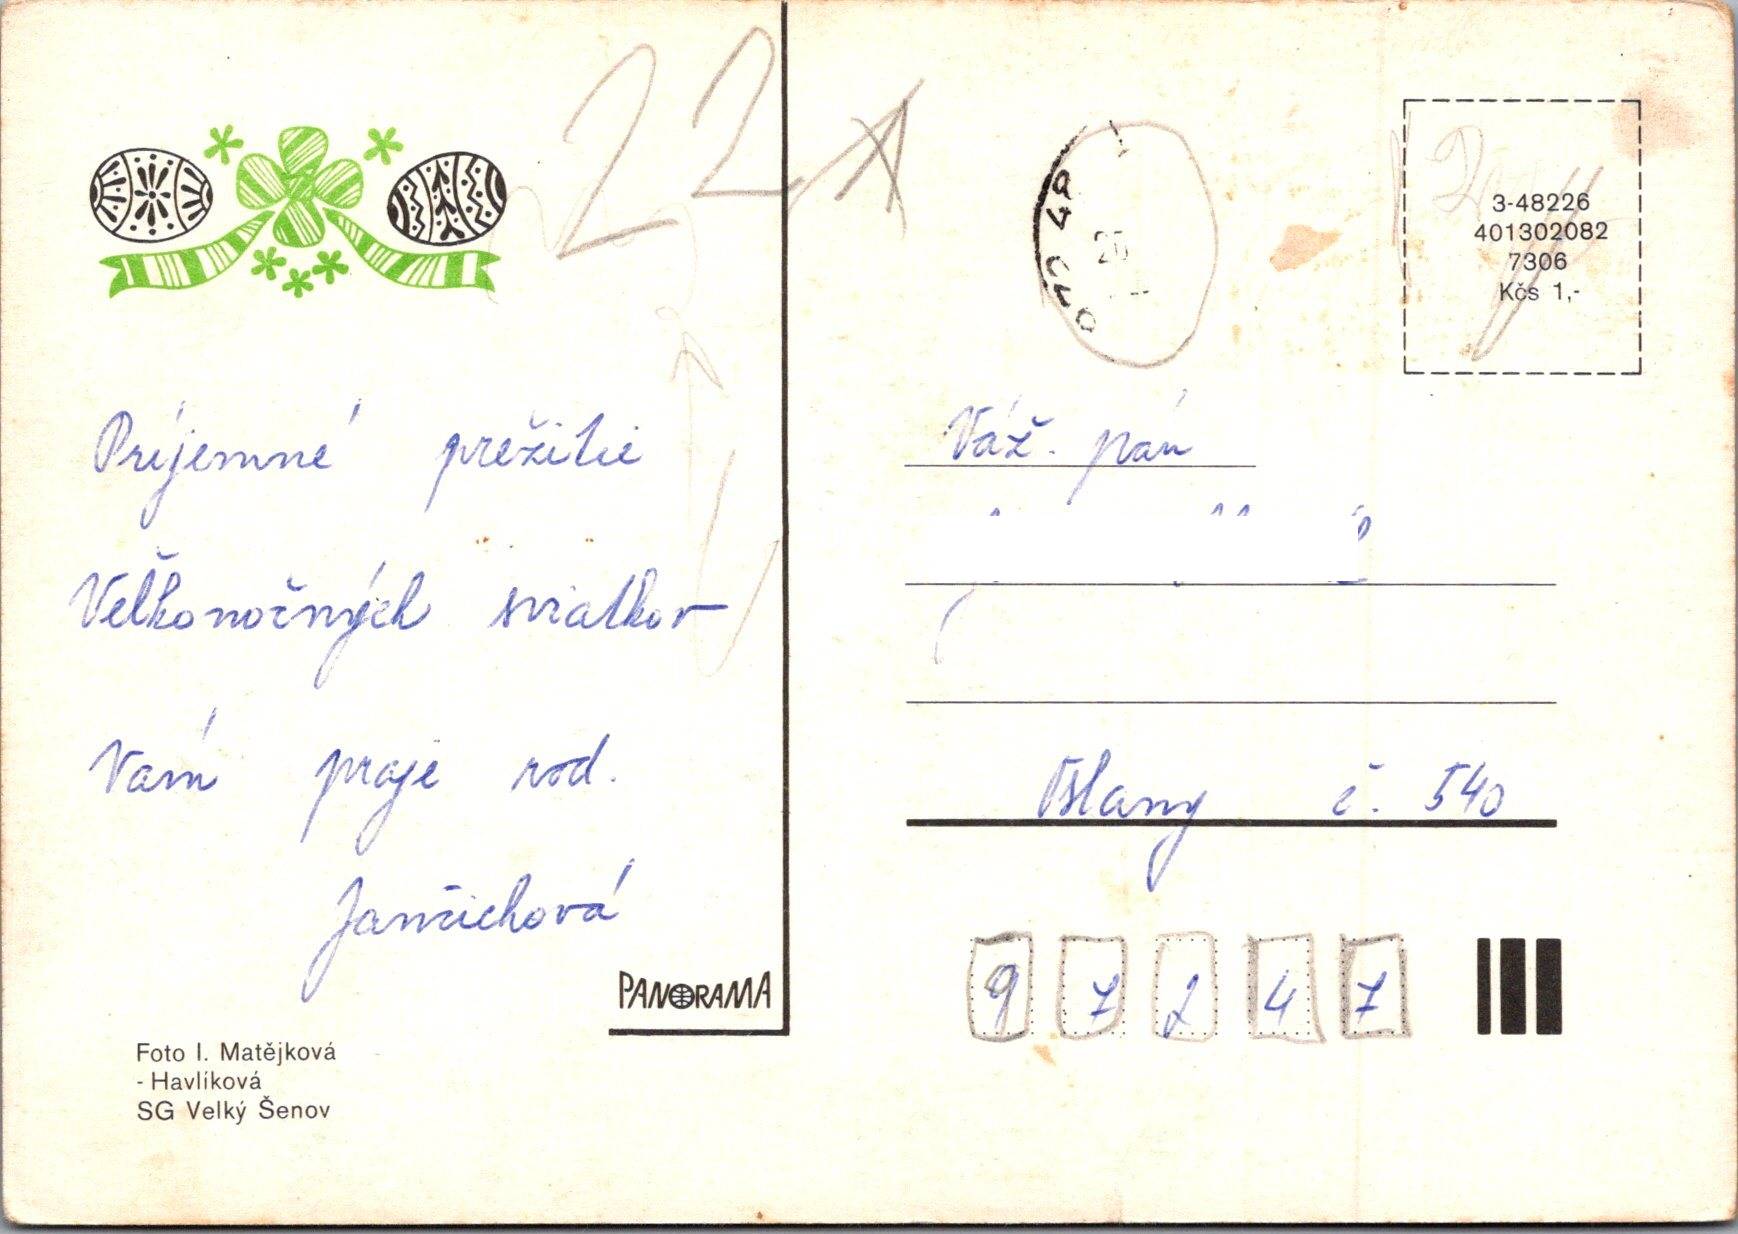 22
Príjemné prežitie
Veľkonočných sviatkov
Vám praje rod.
Jančichová
PANORAMA
Foto I. Matějková
- Havlíková
SG Velký Šenov
3-48226
401302082
7306
Kčs 1,-
Váž. pán
Oslany č. 540
97247